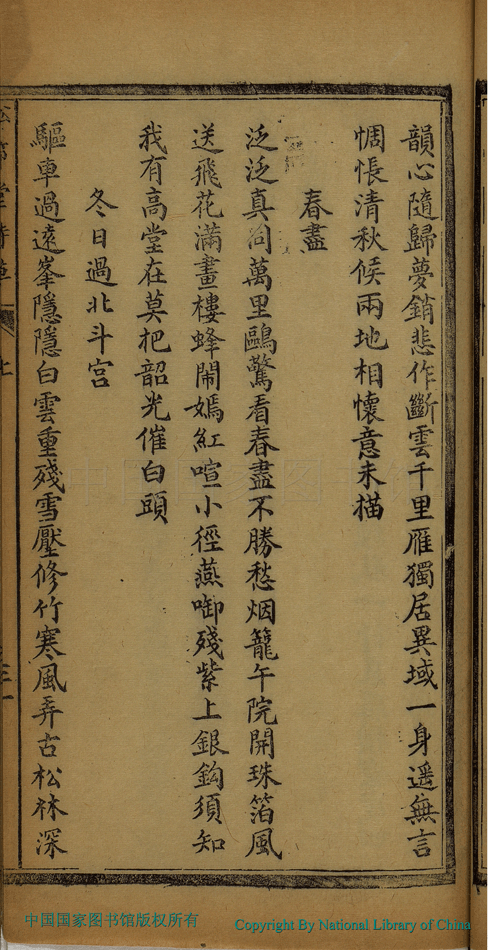 韻心隨歸夢銷悲作斷雲千里雁獨居異域一身遥無言
惆悵清秋候兩地相懷意未描
春盡
泛泛真同萬里鷗驚看春盡不勝愁烟籠午院開珠箔風
送飛花滿畫樓蜂鬧嫣紅喧小徑燕啣殘紫上銀鈎須知
我有高堂在莫把韶光催白頭
冬日過北斗宫
驅車過遠峯隱隱白雲重殘雪壓修竹寒風弄古松林深
中国国家图书馆
中国国家图书馆版权所有
Copyright By National Library of China